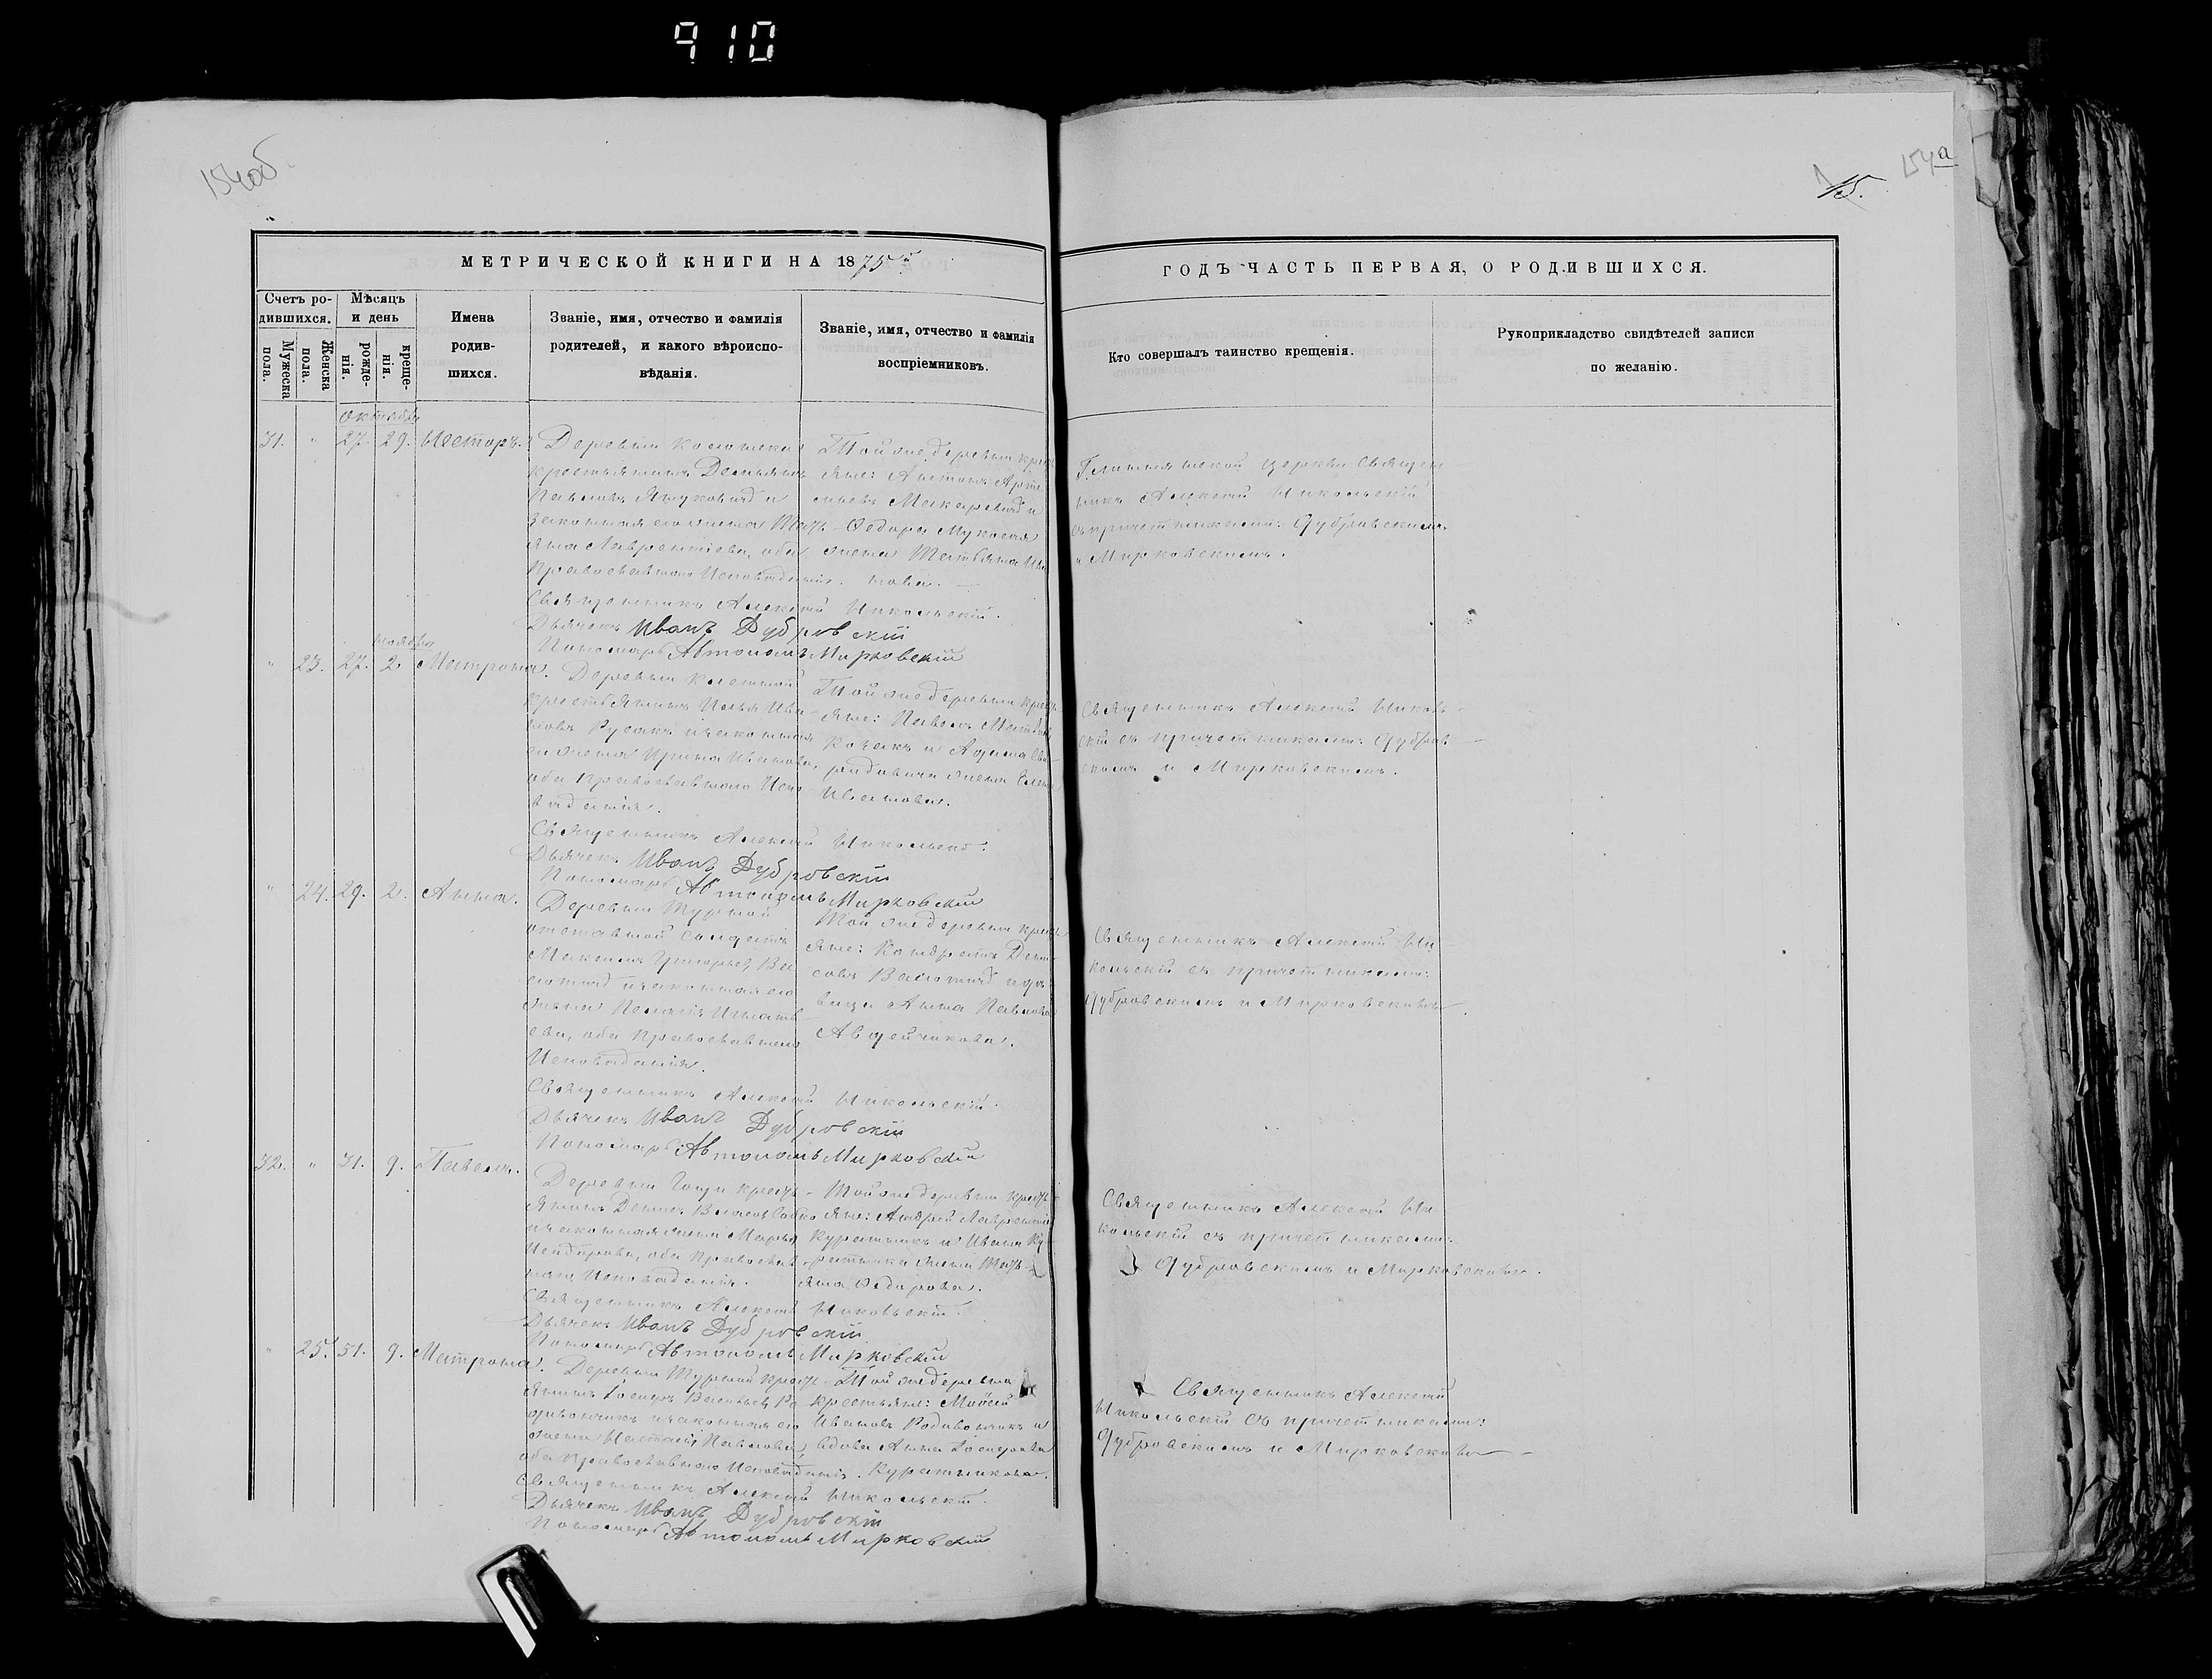 910
154об
15.
154а
МЕТРИЧЕСКОЙ КНИГИ НА 1875й
ГОДЪ ЧАСТЬ ПЕРВАЯ, О РОДИВШИХСЯ.
Счетъ ро-
дившихся.
Мужеска
пола.
Женска
пола.
Мѣсяцъ
и день
рожде-
нія.
креще-
нія.
Имена
родив-
шихся.
Званіе, имя, отчество и фамилія
родителей, и какого вѣроиспо-
вѣданія.
Званіе, имя, отчество и фамилія
воспріемниковъ.
Кто совершалъ таинство крещенія.
Рукоприкладство свидѣтелей записи
по желанію.
Октября
31. " 27. 29. Несторъ.
Деревни
крестьянинъ Демьянъ
Павловъ Януковичъ и
законная его жена Тать-
яна Лаврентіева, оба
Православнаго Исповѣданія.
Той же деревни кресть-
яне: Антонъ Арте-
мьевъ Макаревичъ и
Ѳедора
жена Татьяна Ива-
нова.
церкви Священ-
никъ Алексѣй Никольскій
съ причетниками: Дубровскимъ
и Мирковскимъ.
Священникъ Алексѣй Никольскій.
Дьячекъ Иванъ Дубровскій
Пономарь Автономъ Мирковскій
ноября
" 23. 27. 2. Матрона.
Деревни
крестьянинъ Илья Ива-
новъ Русакъ и законная
его жена Ирина Иванова,
оба Православнаго Испо-
вѣданія.
Той же деревни кресть-
яне: Павелъ
Козакъ и Адама Сви-
ридовича жена
Иванова.
Священникъ Алексѣй Николь-
скій съ причетниками: Дубров-
скимъ и Мирковскимъ.
Священникъ Алексѣй Никольскій.
Дьячекъ Иванъ Дубровскій
Пономарь Автономъ Мирковскій
" 24. 29. 2. Анна.
Деревни Турной
отставной солдатъ
Максимъ Григорьевъ Ва-
сютичъ и законная его
жена Пелагія Игнать-
ева, оба Православнаго
Исповѣданія.
Той же деревни кресть-
яне: Кондратъ Дени-
совъ Васютичъ и дѣ-
вица Анна Павлова
Авдейчикова.
Священникъ Алексѣй Ни-
кольскій съ причетниками:
Дубровскимъ и Мирковскимъ.
Священникъ Алексѣй Никольскій.
Дьячекъ Иванъ Дубровскій
Пономарь Автономъ Мирковскій
32. " 31. 9. Павелъ.
Деревни Гощи кресть-
янинъ Денисъ Власовъ
и законная жена Марья
оба Православ-
наго Исповѣданія.
Той же деревни кресть-
яне: Андрей Лаврентіевъ
Куратникъ и Ивана Ку-
ратника жена Тать-
яна Ѳедорова.
Священникъ Алексѣй Ни-
кольскій съ причетниками:
Дубровскимъ и Мирковскимъ.
Священникъ Алексѣй Никольскій.
Дьячекъ Иванъ Дубровскій
Пономарь Автономъ Мирковскій
" 25. 31. 9. Матрона.
Деревни Турной кресть-
янинъ Іосифъ Васильевъ Ро-
дивончикъ и законная его
жена Наталія Павлова,
оба Православнаго Исповѣданія.
Той же деревни
крестьяне: Мойсей
Ивановъ Родивончикъ и
вдова Анна Іосифова
Куратникова.
Священникъ Алексѣй
Никольскій съ причетниками:
Дубровскимъ и Мирковскимъ
Священникъ Алексѣй Никольскій.
Дьячекъ Иванъ Дубровскій
Пономарь Автономъ Мирковскій